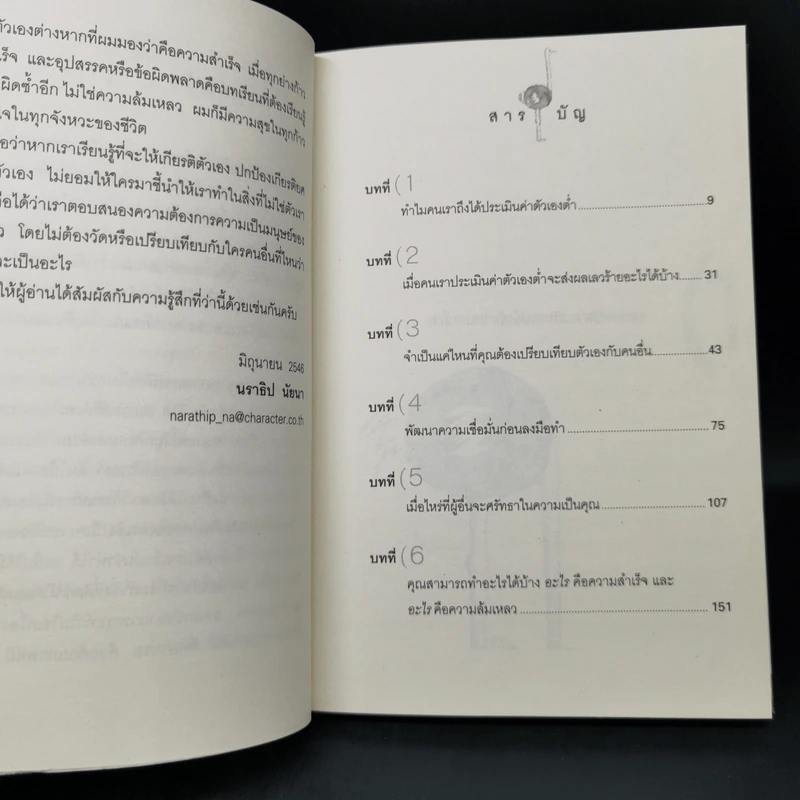 ตัวเองต่างหากที่ผมมองว่าคือความสำเร็จ เมื่อทุกย่างก้าว
และอุปสรรคหรือข้อผิดพลาดคือบทเรียนที่ต้องเรียนรู้
ผิดซ้ำอีก ไม่ใช่ความล้มเหลว ผมก็มีความสุขในทุกก้าว
ในทุกจังหวะของชีวิต
ว่าหากเราเรียนรู้ที่จะให้เกียรติตัวเอง ปกป้องเกียรติยศ
ตัวเอง ไม่ยอมให้ใครมาชี้นำให้เราทำในสิ่งที่ไม่ใช่ตัวเรา
ได้ว่าเราตอบสนองความต้องการความเป็นมนุษย์ของ
โดยไม่ต้องวัดหรือเปรียบเทียบกับใครคนอื่นที่ไหนว่า
จะเป็นอะไร
ให้ผู้อ่านได้สัมผัสกับความรู้สึกที่ว่านี้ด้วยเช่นกันครับ
มิถุนายน 2546
นราธิป นัยนา
narathip_na@character.co.th
สารบัญ
บทที่ (1
ทำไมคนเราถึงได้ประเมินค่าตัวเองต่ำ 9
บทที่ (2
เมื่อคนเราประเมินค่าตัวเองต่ำจะส่งผลเลวร้ายอะไรได้บ้าง 31
บทที่ (3
จำเป็นแค่ไหนที่คุณต้องเปรียบเทียบตัวเองกับคนอื่น 43
บทที่ (4
พัฒนาความเชื่อมั่นก่อนลงมือทำ 75
บทที่ (5
เมื่อไหร่ที่ผู้อื่นจะศรัทธาในความเป็นคุณ 107
บทที่ (6
คุณสามารถทำอะไรได้บ้าง อะไร คือความสำเร็จ และ
อะไร คือความล้มเหลว 151